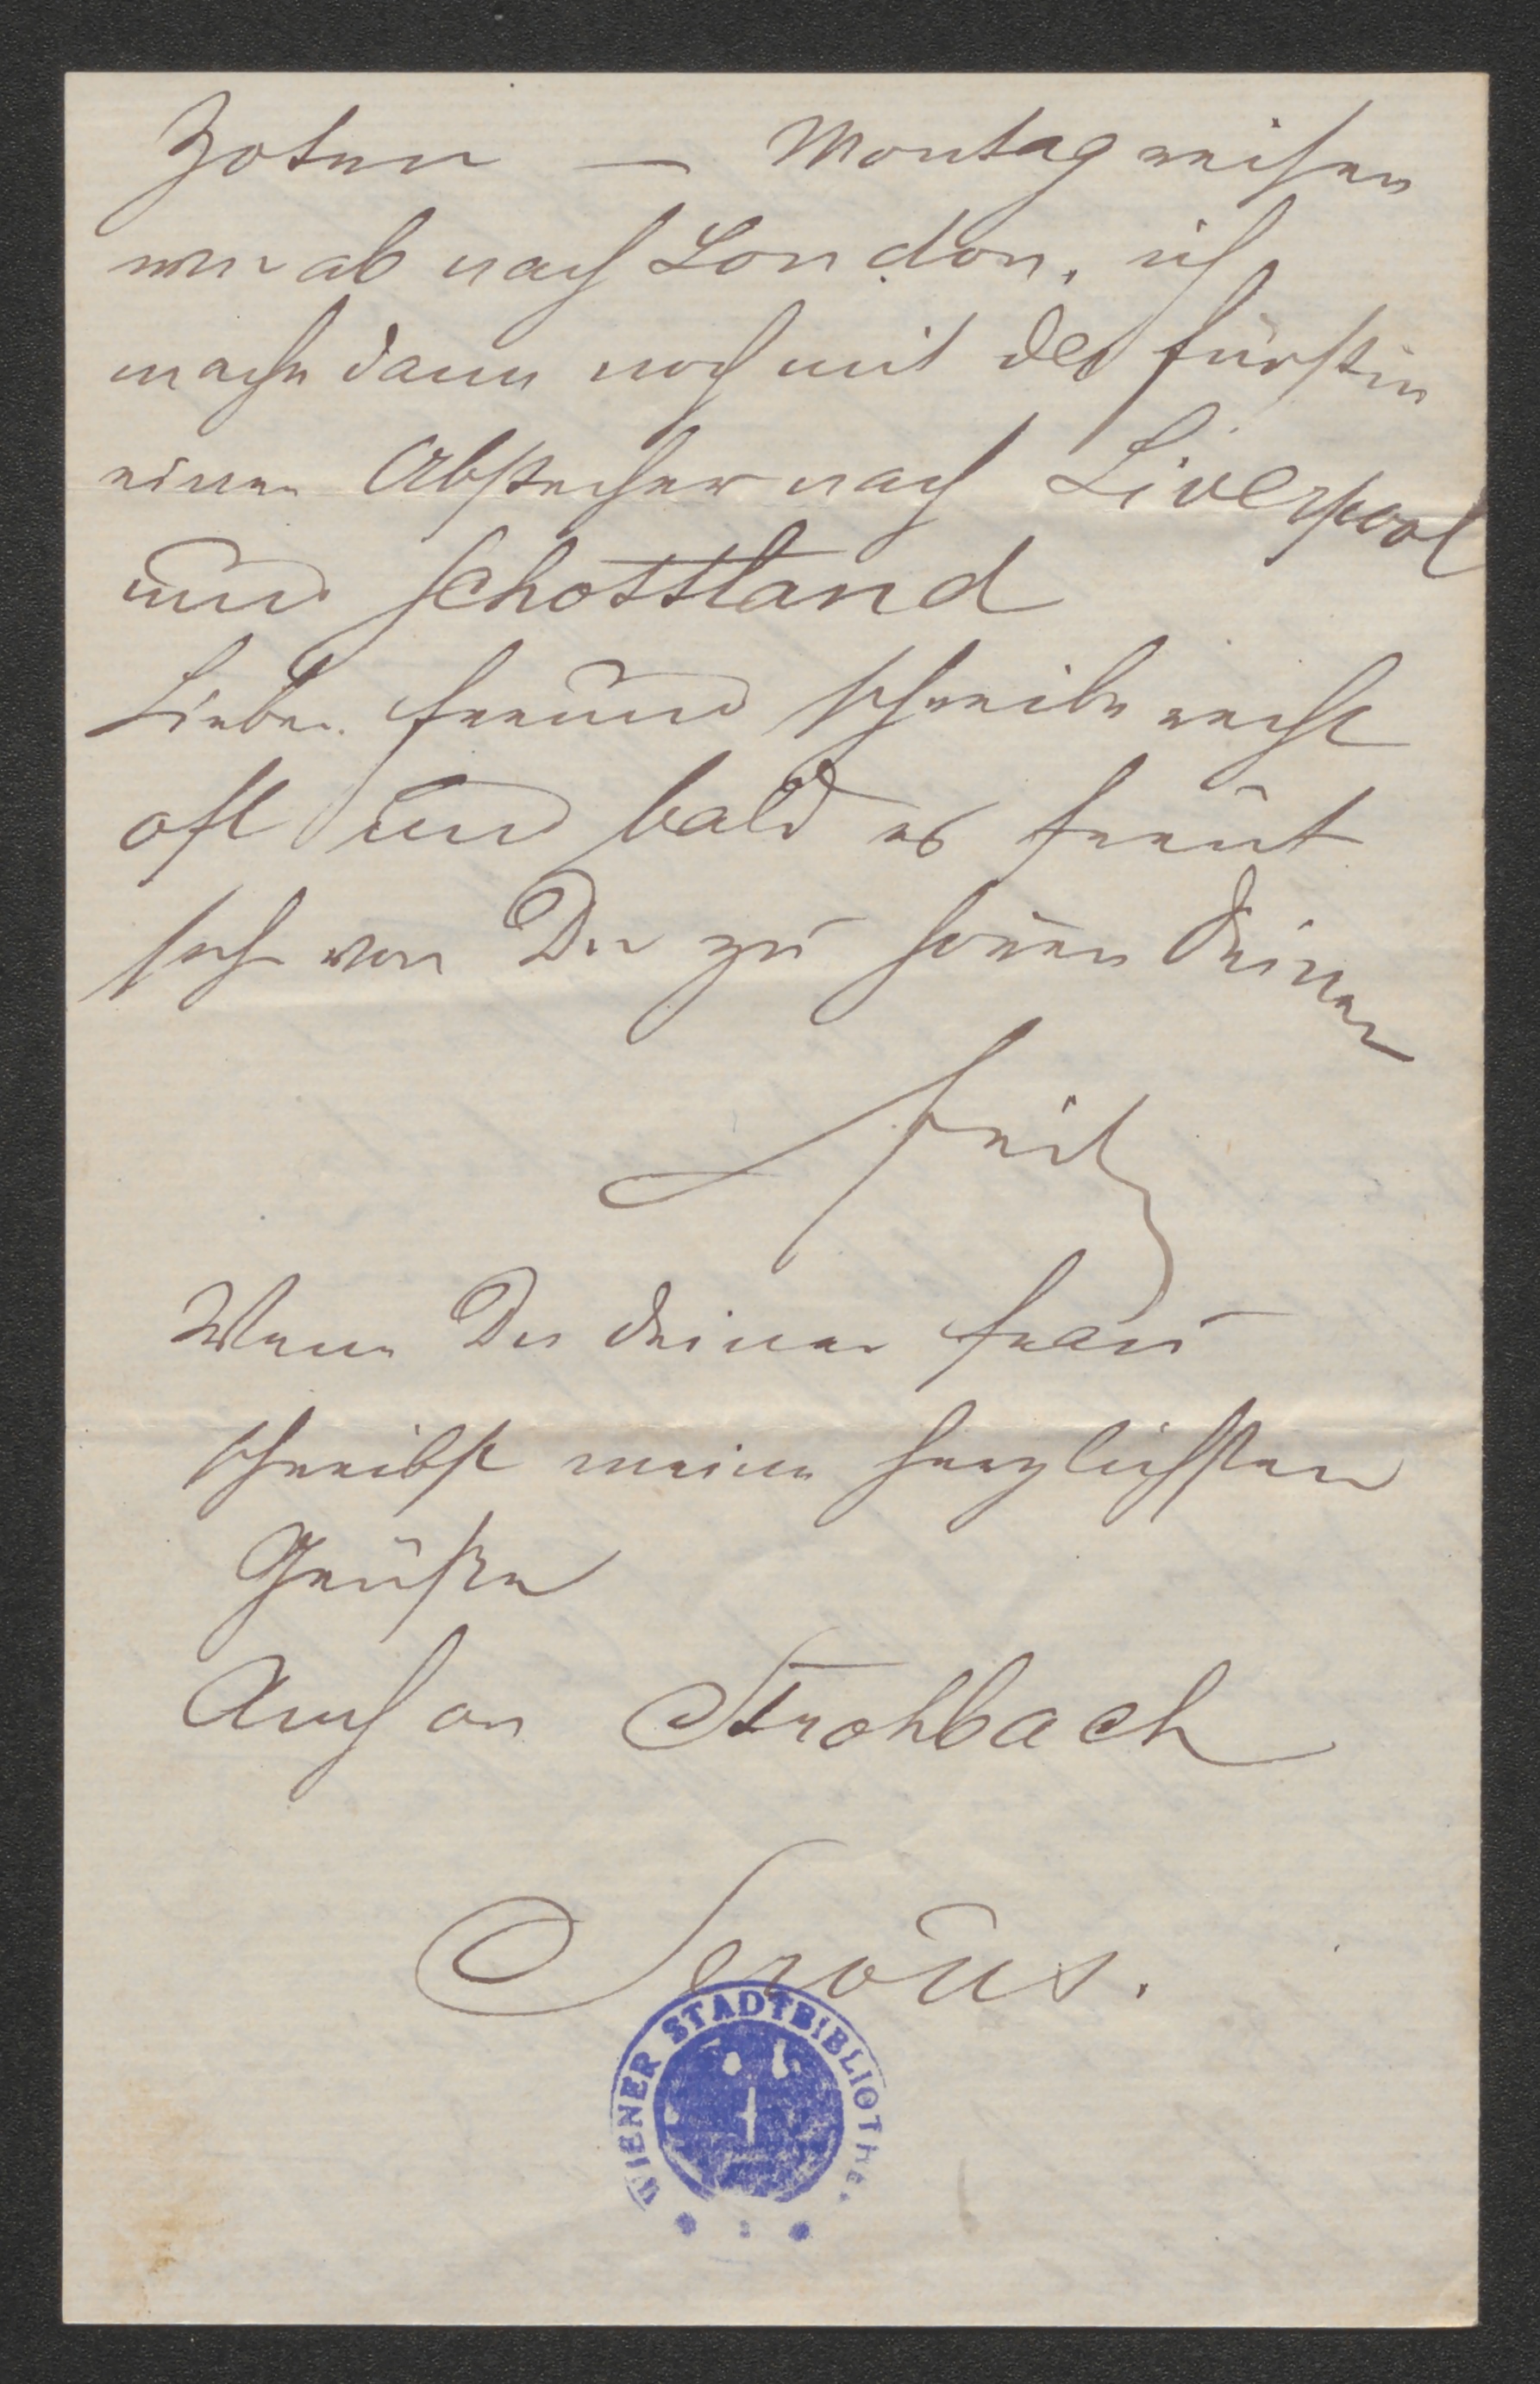 Zoten — Montag reisen
wir ab nach London. ich
mache dann noch mit der Fürstin
einen Abstecher nach Liverpool
und Schottland
Lieber Freund schreibe recht
oft und bald es freut
sich von Dir zu hören Deiner
Fritz
Wenn Du Deiner Frau
schreibst meine herzlichsten
Grüße
Auch an Strohbach
Servus.
WIENER STADTBIBLIOTHEK